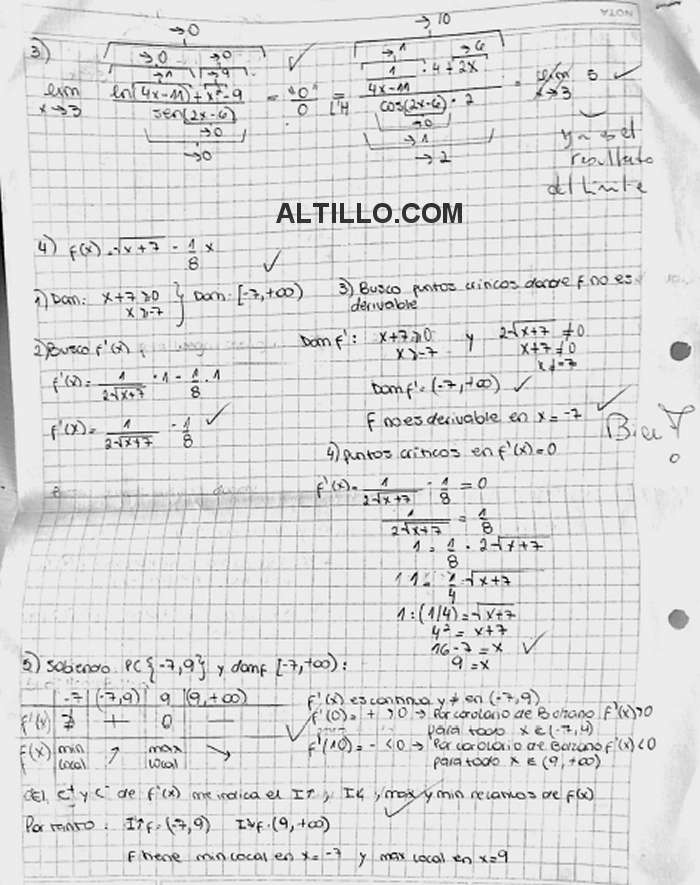 NOTA
→0 →10
3) →0 →0 →1 →6
→1 →9
lim x→3 ln(4x-11)+x²-9 / sen(2x-6) = "0"/0 = L'H 1/(4x-11) · 4 + 2x / cos(2x-6) · 2 = lim x→3 5 ✓
→0 →0
→0 →1
→2
ya es el
resultado
del límite
ALTILLO.COM
4) f(x) = √x+7 - 1/8 x
1) Dom: x+7≥0 } Dom: [-7,+∞) ✓
x≥-7
3) Busco puntos criticos donde f no es
derivable
2) Busco f'(x)
Dom f': x+7≥0 y 2√x+7 ≠0
x≥-7 x+7≠0
x≠-7
f'(x) = 1/2√x+7 · 1 - 1/8 · 1
Dom f' = (-7,+∞) ✓
f'(x) = 1/2√x+7 - 1/8 ✓
f no es derivable en x = -7 ✓
Bien!
4) puntos criticos en f'(x)=0
f'(x) = 1/2√x+7 - 1/8 = 0
1/2√x+7 = 1/8
1 = 1/8 · 2√x+7
1 = 1/4 √x+7
1:(1/4) = √x+7
4² = x+7
16-7 = x ✓
9 = x
5) Sabiendo PC{-7,9} y dom f [-7,+∞):
-7 (-7,9) 9 (9,+∞)
f'(x) ∄ + 0 -
f(x) min local ↗ max local ↘
f'(x) es continua y ≠ en (-7,9)
f'(0) = + >0 → Por corolario de Bolzano f'(x)>0
para todo x ∈ (-7,9)
f'(10) = - <0 → Por corolario de Bolzano f'(x)<0
para todo x ∈ (9,+∞)
del C⁺ y C⁻ de f'(x) me indica el I↑, I↓, max y min relativos de f(x)
Por tanto: I↑f: (-7,9) I↓f: (9,+∞)
f tiene min local en x = -7 y max local en x=9